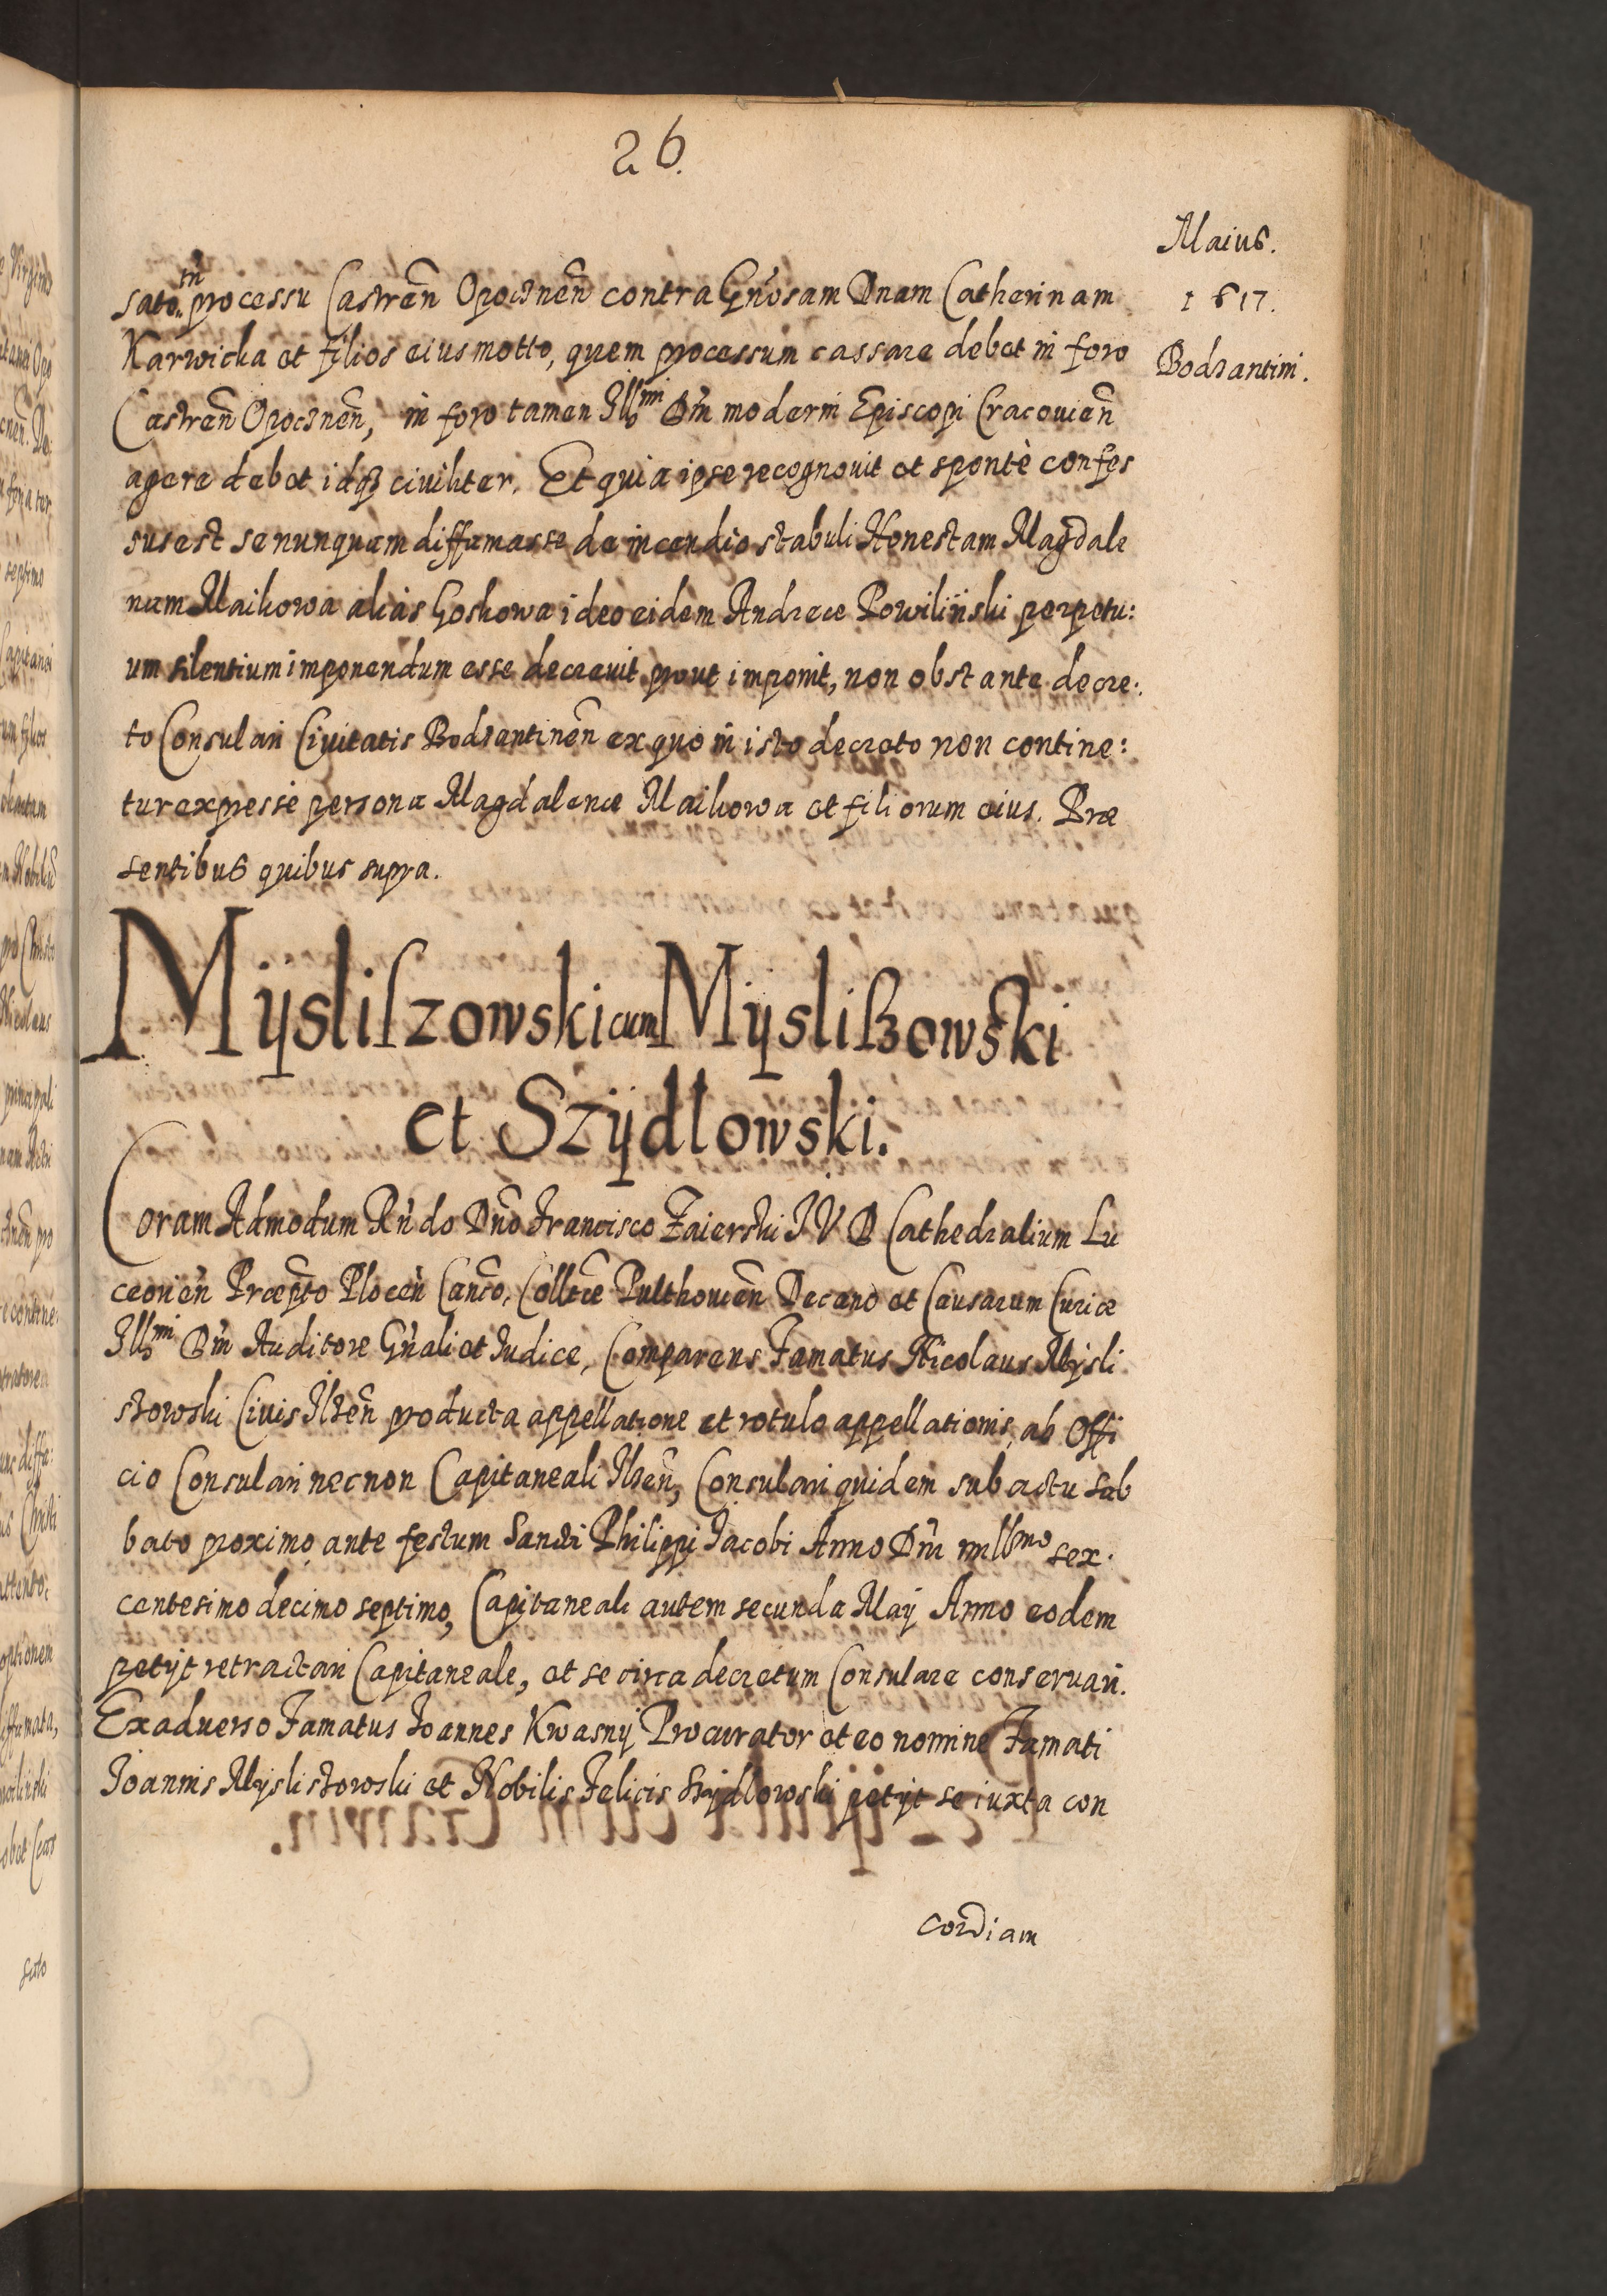 26.
Maius.
1617.
Bodzantini.
sato in processu Castren̄ Opocznen̄ contra Gn̄osam Dnam Catherinam
Karwicka et filios eius motto, quem processum cassare debet in foro
Castren̄ Opocznen̄, in foro tamen Illmi Dn̄i moderni Episcopi Cracouien̄
agere debet idq3 ciuiliter. Et quia ipse recognouit et spontè confes
sus est se nunquam diffamasse de incendio stabuli Honestam Magdale
nam Maikowa aliàs Goskowa ideo eidem Andreæ Powilinski perpetu:
um silentium imponendum esse decreuit prout imponit, non obstante decre:
to Consulari Ciuitatis Bodzantinen̄ ex quo in isto decreto non contine:
tur expressè persona Magdalenæ Maikowa et filiorum eius. Præ
sentibus quibus supra.
Mÿsliszowski cum Mÿsliszowski
et Szÿdlowski.
Coram Admodum Rn̄do Dn̄o Francisco Zaierski I V D Cathedralium Lu
ceorien̄ Præpto Plocen̄ Canco, Colltæ Pulthouien̄ Decano et Causarum Curiæ
Illmi Dn̄i Auditore Gn̄ali et Iudice, Comparens Famatus Nicolaus Mÿsli
szowski Ciuis Ilzen̄ producta appellatione et rotulo appellationis, ab Offi
cio Consulari necnon Capitaneali Ilzen̄, Consulari quidem sub actu Sab
bato proximo ante festum Sancti Philippi Iacobi Anno Dn̄i millmo sex.
centesimo decimo septimo, Capitaneali autem secunda Maÿ Anno eodem
petÿt retractari Capitaneale, et se circa decretum Consulare conseruari.
Exaduerso Famatus Ioannes Kwasnÿ Procurator et eo nomine Famati
Ioannis Mÿsliszowski et Nobilis Felicis Szÿdlowski petÿt se iuxta con
cordiam